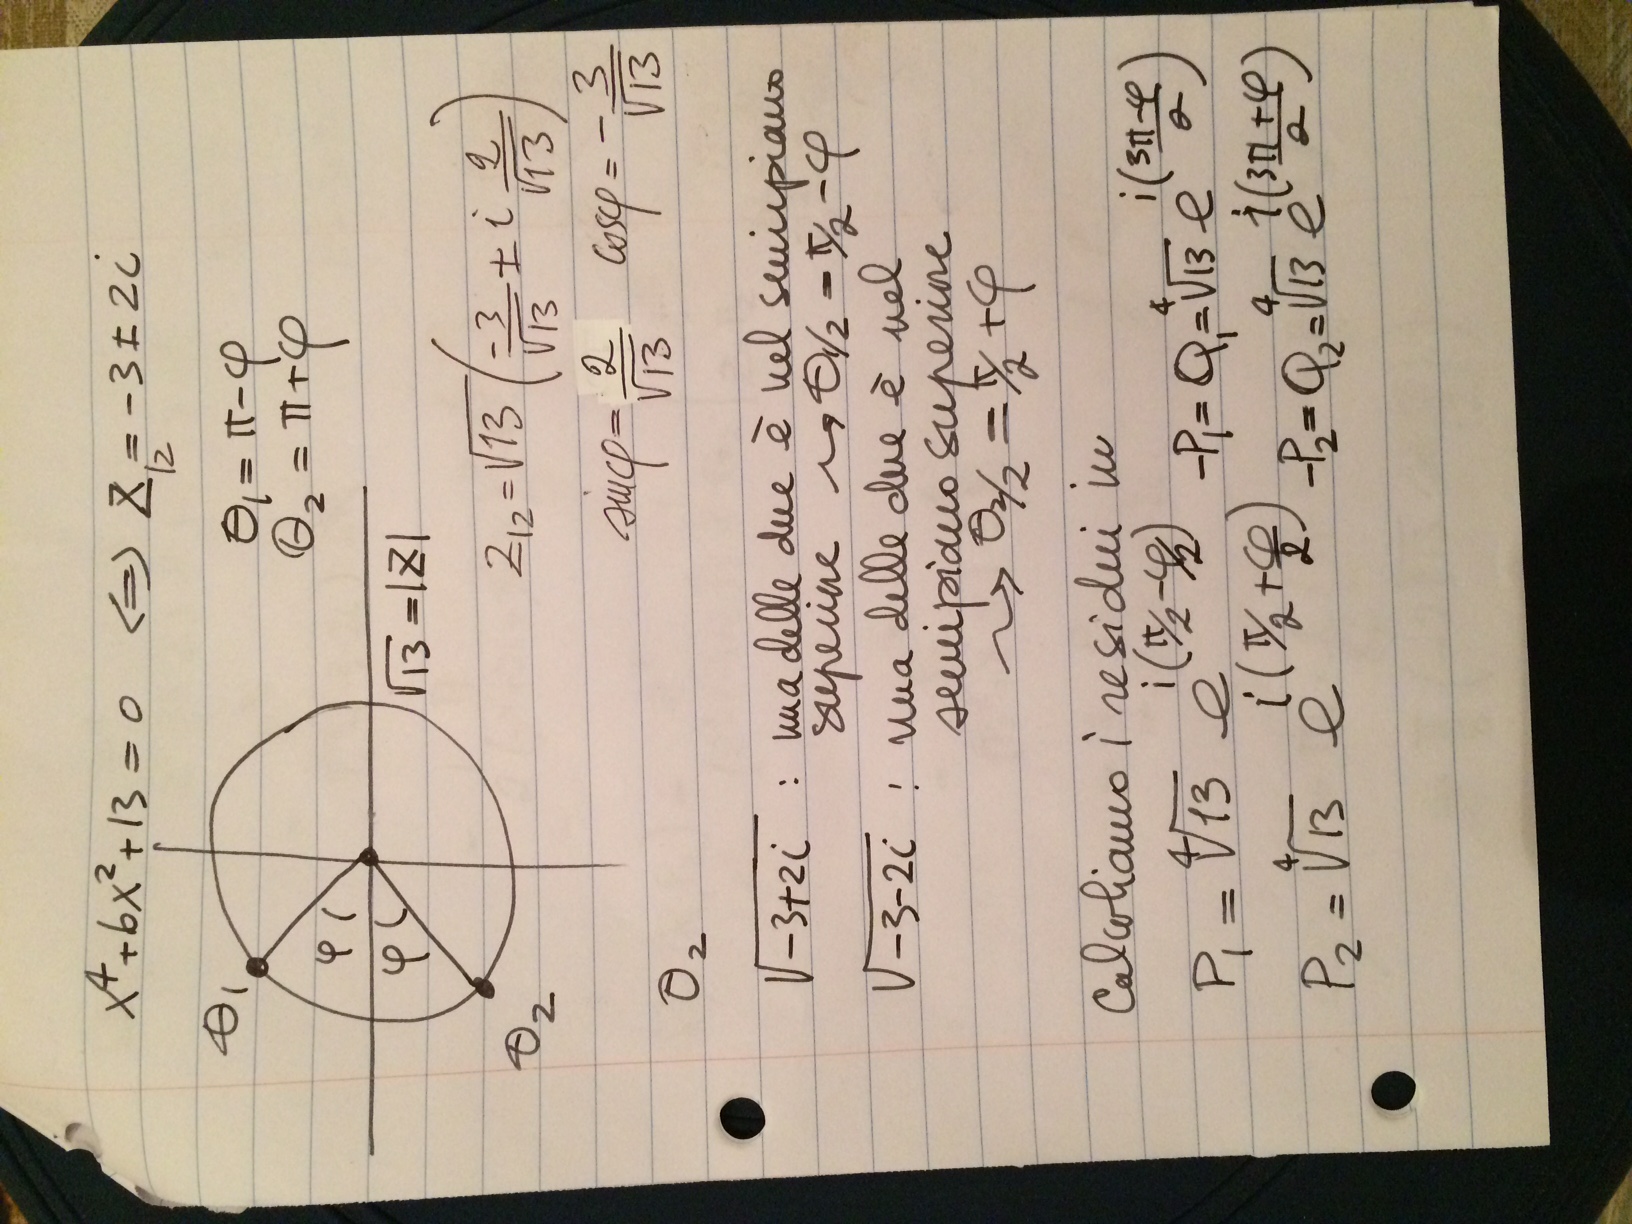 x⁴+6x²+13=0 <=> z₁₂=-3±2i
θ₁=π-φ
θ₂=π+φ
θ₁
φ
φ
√13=|z|
θ₂
z₁₂=√13(-3/√13±i2/√13)
sinφ=2/√13 cosφ=-3/√13
θ₂
√-3+2i : una delle due è nel semipiano
superiore ⇝ θ₁/2=π/2-φ
√-3-2i : una delle due è nel
semipiano superiore
⇝ θ₂/2=π/2+φ
Calcoliamo i residui in
P₁=⁴√13 e^i(π/2-φ/2) -P₁=Q₁=⁴√13 e^i(3π-φ/2)
P₂=⁴√13 e^i(π/2+φ/2) -P₂=Q₂=⁴√13 e^i(3π+φ/2)